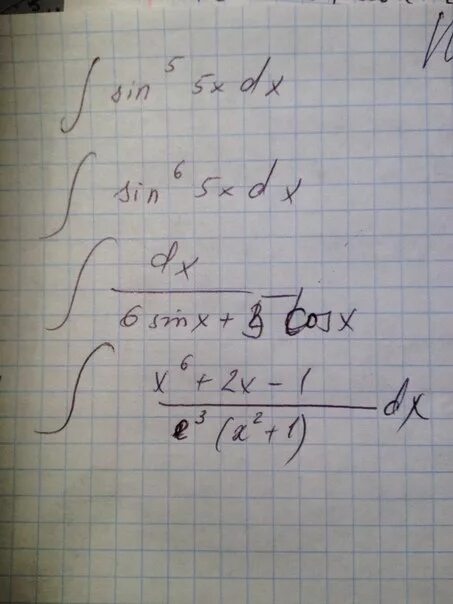 ∫ sin⁵ 5x dx
∫ sin⁶ 5x dx
∫ dx / (6 sin x + cos x)
∫ (x⁶ + 2x - 1) / (³ (x² + 1)) dx